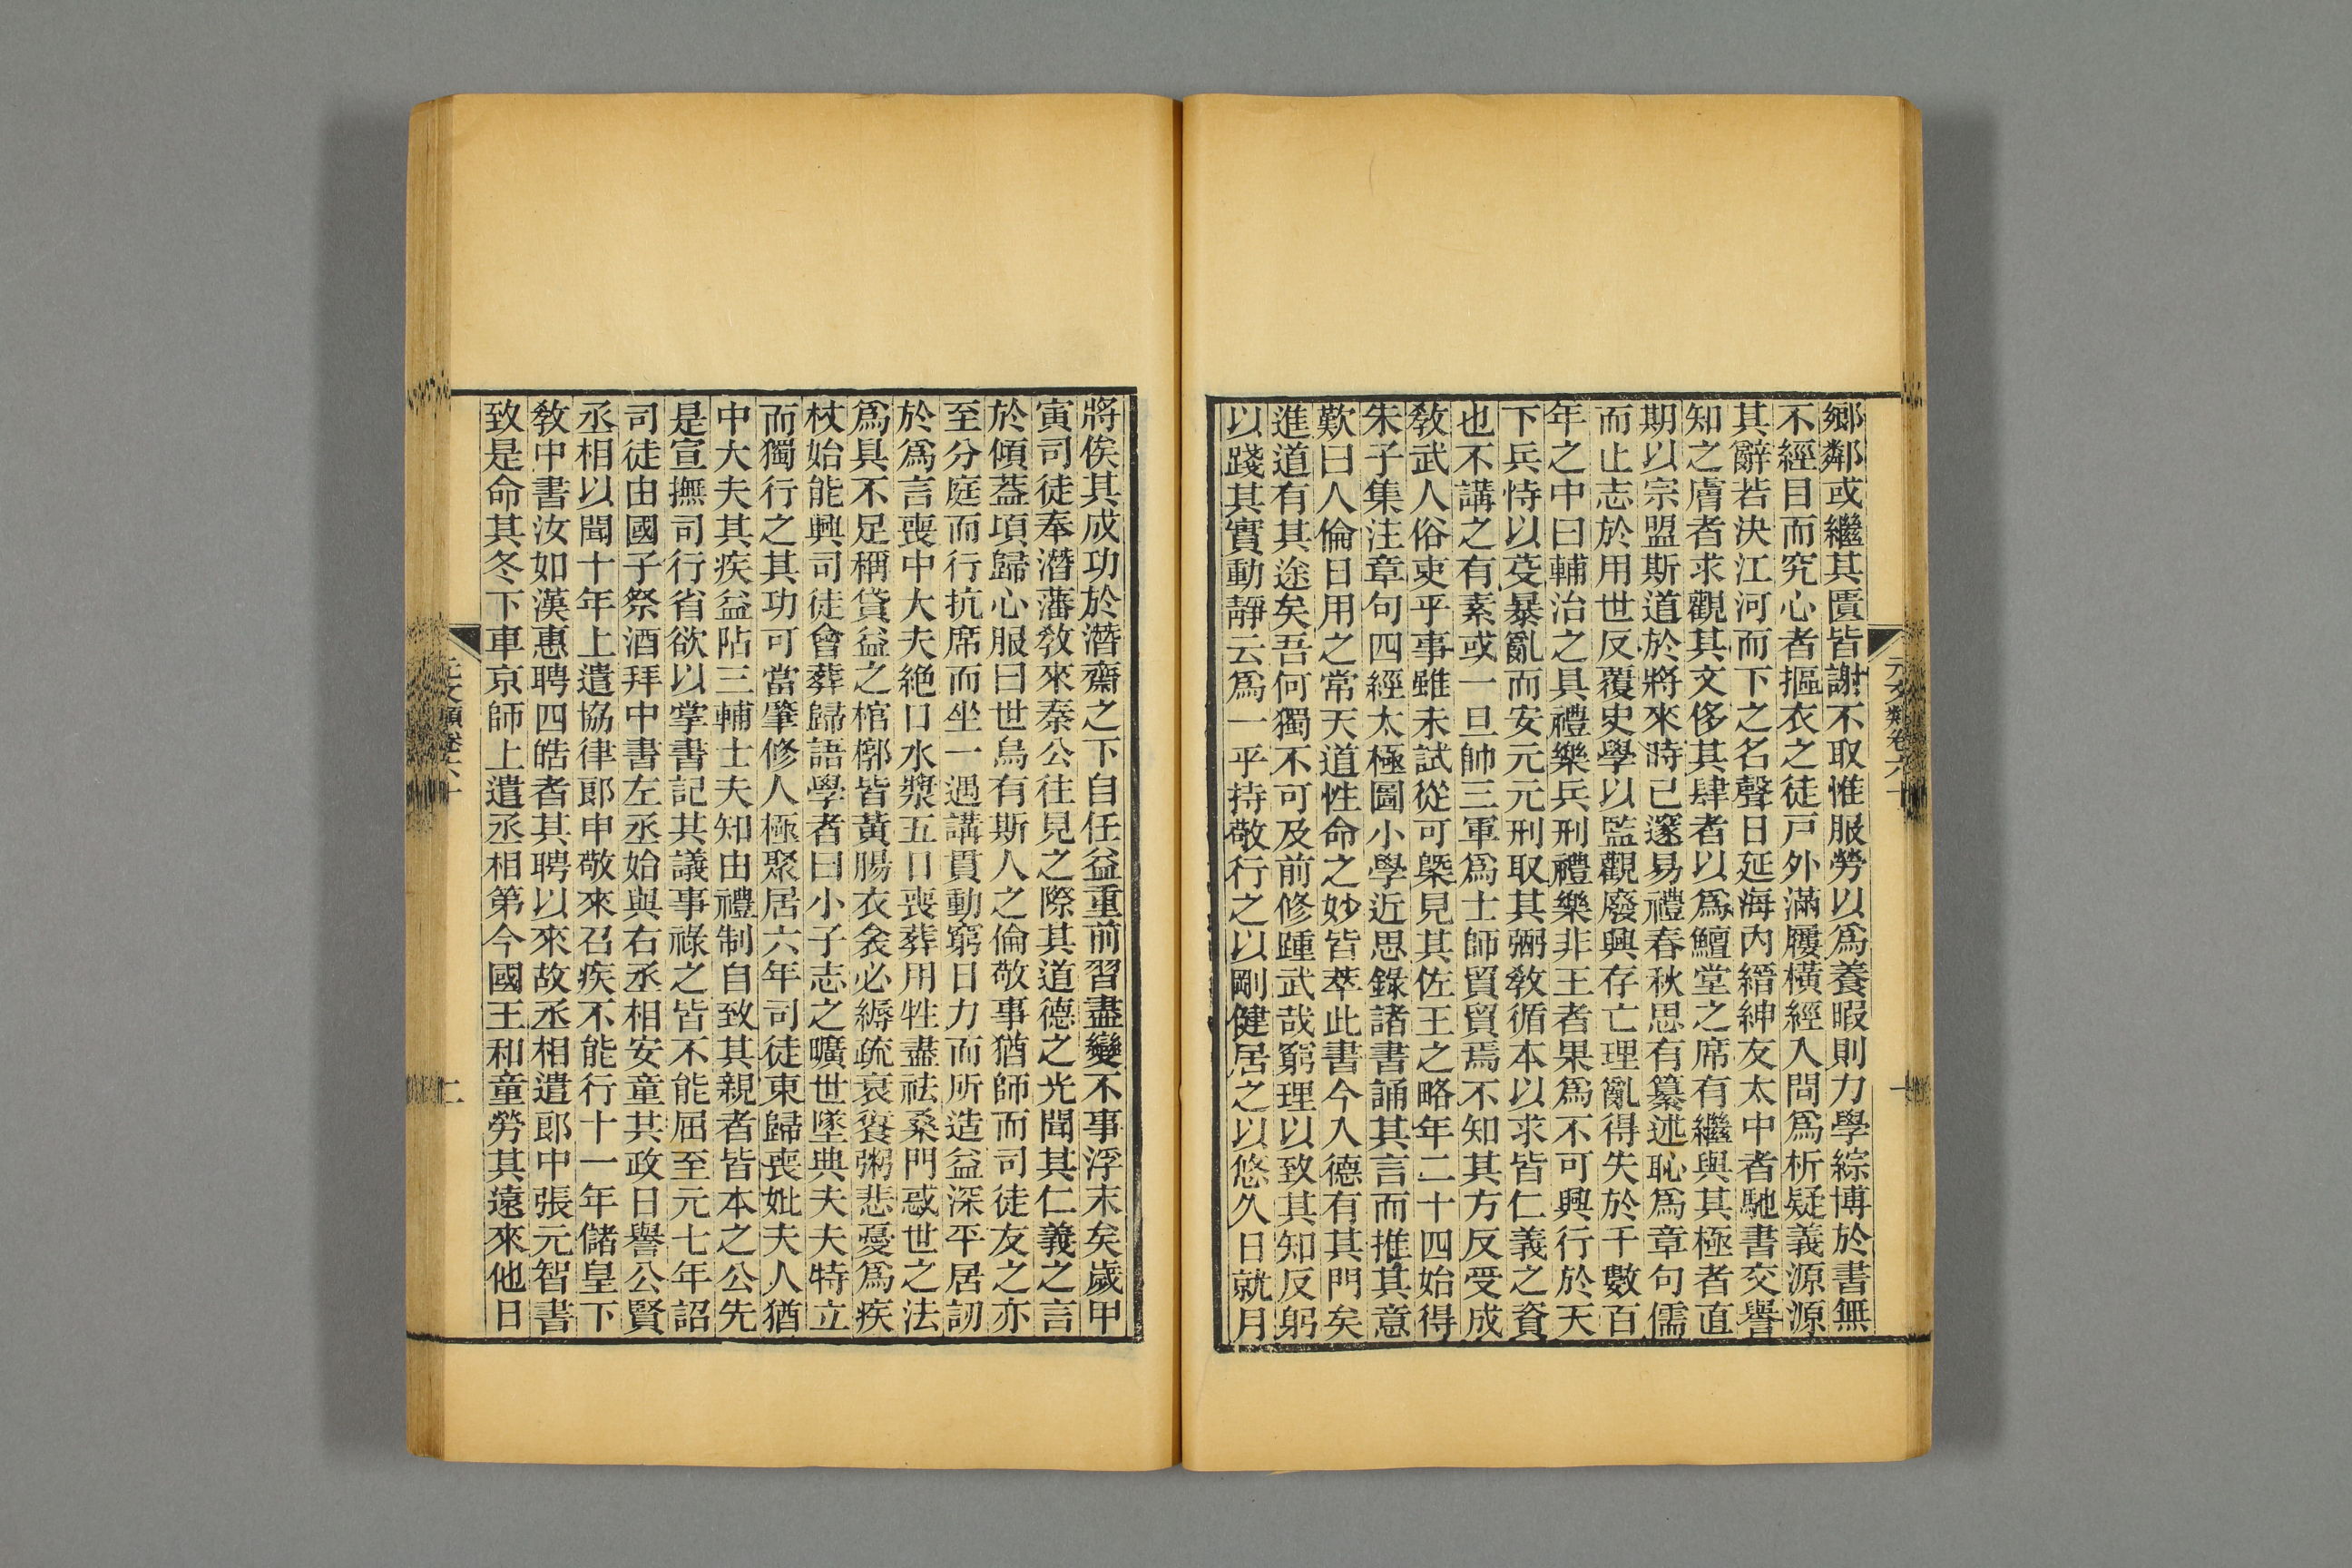 元文類卷六十
一
鄉鄰或繼其匱皆謝不取惟服勞以爲養暇則力學綜博於書無
不經目而究心者摳衣之徒戸外滿屨橫經入問爲析疑義源源
其辭若決江河而下之名聲日延海內縉紳友太中者馳書交譽
知之膚者求觀其文侈其肆者以爲鱣堂之席有繼與其極者直
期以宗盟斯道於將來時己邃易禮春秋思有纂述恥爲章句儒
而止志於用世反覆史學以監觀廢興存亡理亂得失於千數百
年之中曰輔治之具禮樂兵刑禮樂非王者果爲不可興行於天
下兵恃以芟暴亂而安元元刑取其弼敎循本以求皆仁義之資
也不講之有素或一旦帥三軍爲士師貿貿焉不知其方反受成
敎武人俗吏乎事雖未試從可槩見其佐王之略年二十四始得
朱子集注章句四經太極圖小學近思錄諸書誦其言而推其意
歎曰人倫日用之常天道性命之妙皆萃此書今入德有其門矣
進道有其途矣吾何獨不可及前修踵武哉窮理以致其知反躬
以踐其實動靜云爲一乎持敬行之以剛健居之以悠久日就月
將俟其成功於潛齋之下自任益重前習盡變不事浮末矣歲甲
寅司徒奉潛藩敎來秦公往見之際其道德之光聞其仁義之言
於傾葢頃歸心服曰世烏有斯人之倫敬事猶師而司徒友之亦
至分庭而行抗席而坐一遇講貫動窮日力而所造益深平居訒
於爲言喪中大夫絶口水漿五日喪葬用牲盡祛桑門惑世之法
爲具不足稱貸益之棺槨皆黃腸衣衾必縟疏衰餐粥悲憂爲疾
杖始能興司徒會葬歸語學者曰小子志之曠世墜典夫夫特立
而獨行之其功可當肇修人極聚居六年司徒東歸喪妣夫人猶
中大夫其疾益阽三輔士夫知由禮制自致其親者皆本之公先
是宣撫司行省欲以掌書記其議事祿之皆不能屈至元七年詔
司徒由國子祭酒拜中書左丞始與右丞相安童共政日譽公賢
丞相以聞十年上遣協律郎申敬來召疾不能行十一年儲皇下
敎中書汝如漢惠聘四皓者其聘以來故丞相遣郎中張元智書
致是命其冬下車京師上遣丞相第今國王和童勞其遠來他日
元文類卷六十
二